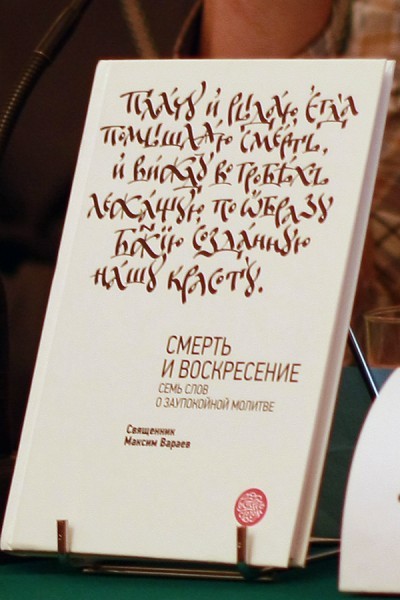 Плачу и рыдаю, егда
помышляю смерть,
и вижду во гробѣхъ
лежащую, по ѡбразу
Бж҃їю созданную
нашу красоту.
СМЕРТЬ
И ВОСКРЕСЕНИЕ
СЕМЬ СЛОВ
О ЗАУПОКОЙНОЙ МОЛИТВЕ
Священник
Максим Вараев